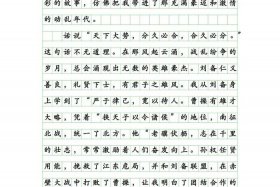 彩的故事，仿佛把我带进了那充满豪迈和激情
的动乱年代。
俗说“天下大势，分久必合，合久必分。”
这句话不无道理。在那风起云涌，战乱纷争的
岁月，总会涌现出无数的英雄豪杰。刘备仁义
善良，礼贤下士，有君子之雄风。我从刘备身
上学到了“严于律己，宽以待人。曹操有雄才
大略，凭着“挟天子以令诸侯”的地位，南征
北战，统一了北方。他“老骥伏枥，志在千里
的壮志，常常激励着人们奋发向上。孙权任贤
用能，挽救了江东危局，并和刘备联盟，在赤
壁大战中打败了曹操，让我明白了团结合作的